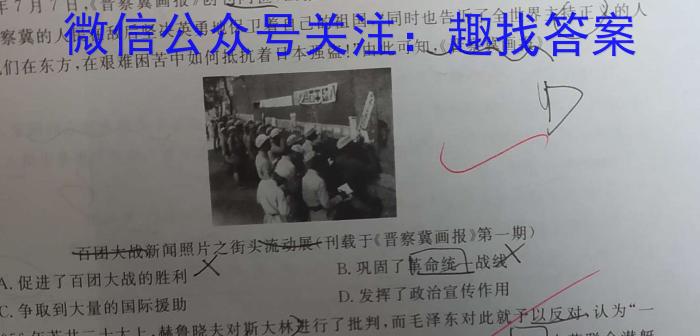 年7月7日,《晋察冀画报》创
微信公众号关注：趣找答案
们在东方,在艰难困苦中如何抵抗着日本强盗
百团大战新闻照片之街头流动展(刊载于《晋察冀画报》第一期)
A.促进了百团大战的胜利
B.巩固了革命统一战线
C.争取到大量的国际援助
D.发挥了政治宣传作用
年苏共二十大上,赫鲁晓夫对斯大林进行了批判,而毛泽东对此就予以反对,认为“一